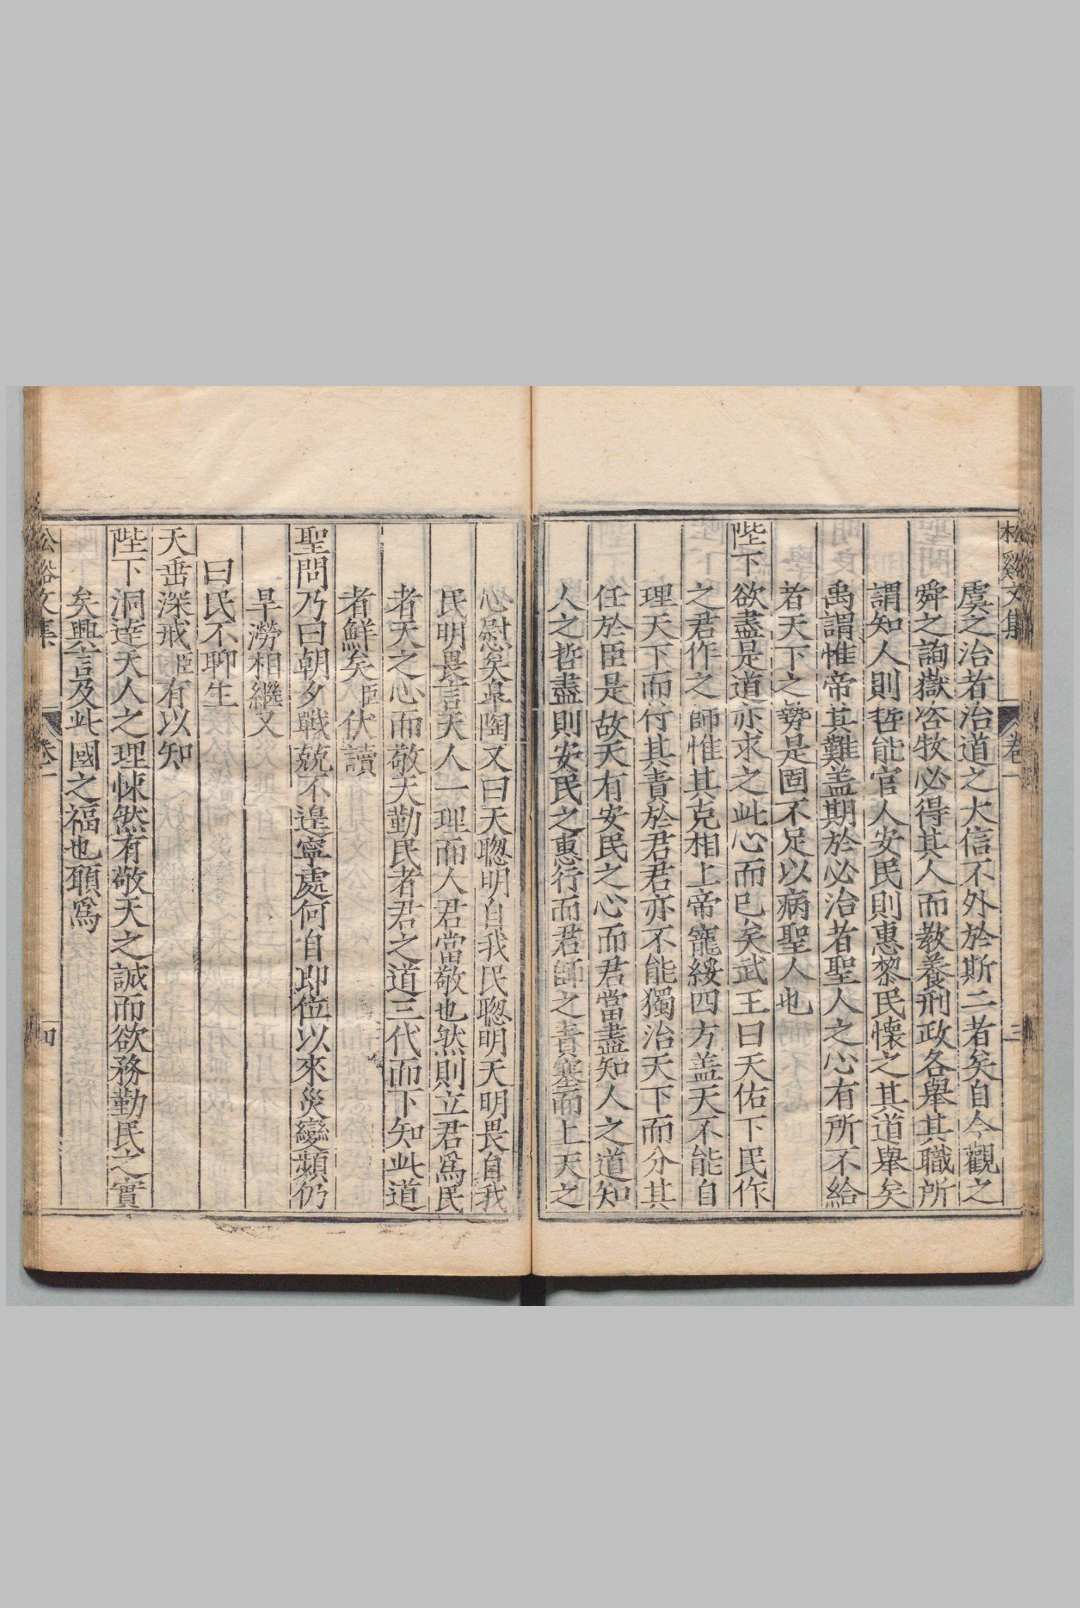 松谿文集 卷一 三
虞之治者治道之大信不外於斯二者矣自今觀之
舜之詢嶽咨牧必得其人而教養刑政各舉其職所
謂知人則哲能官人安民則惠黎民懷之其道舉矣
禹謂惟帝其難盖期於必治者聖人之心有所不給
者天下之勢是固不足以病聖人也
陛下欲盡是道亦求之此心而已矣武王曰天佑下民作
之君作之師惟其克相上帝寵綏四方盖天不能自
理天下而付其責於君君亦不能獨治天下而分其
任於臣是故天有安民之心而君當盡知人之道知
人之哲盡則安民之惠行而君師之責塞而上天之
心慰矣臯陶又曰天聦明自我民聦明天明畏自我
民明畏言天人一理而人君當敬也然則立君爲民
者天之心而敬天勤民者君之道三代而下知此道
者鮮矣臣伏讀
聖問乃曰朝夕戰兢不遑寧處何自即位以來災變頻仍
旱澇相繼又
曰民不聊生
天垂深戒臣有以知
陛下洞逹天人之理悚然有敬天之誠而欲務勤民之實
矣興言及此國之福也頥爲
松谿文集 卷一 四